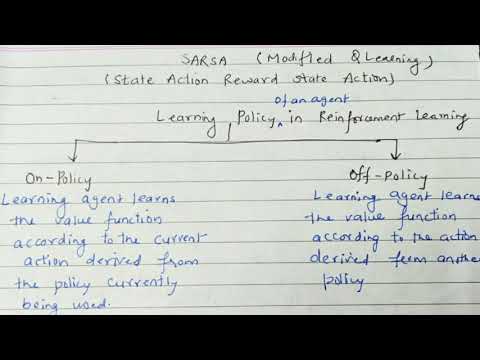 SARSA (Modified Q Learning)
(State Action Reward state Action)
of an agent
Learning Policy ^ in Reinforcement Learning
On-Policy
Learning agent learns
the value function
according to the current
action derived from
the policy currently
being used.
Off-Policy
Learning agent learns
the value function
according to the action
derived from another
policy